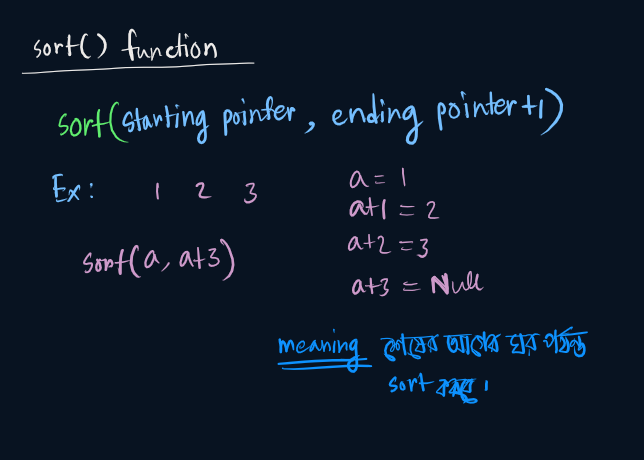 sort() function
sort(starting pointer, ending pointer+1)
Ex: 1 2 3
a = 1
a+1 = 2
a+2 = 3
a+3 = Null
sort(a, a+3)
meaning শেষের আগের ঘর পর্যন্ত
sort করবে।